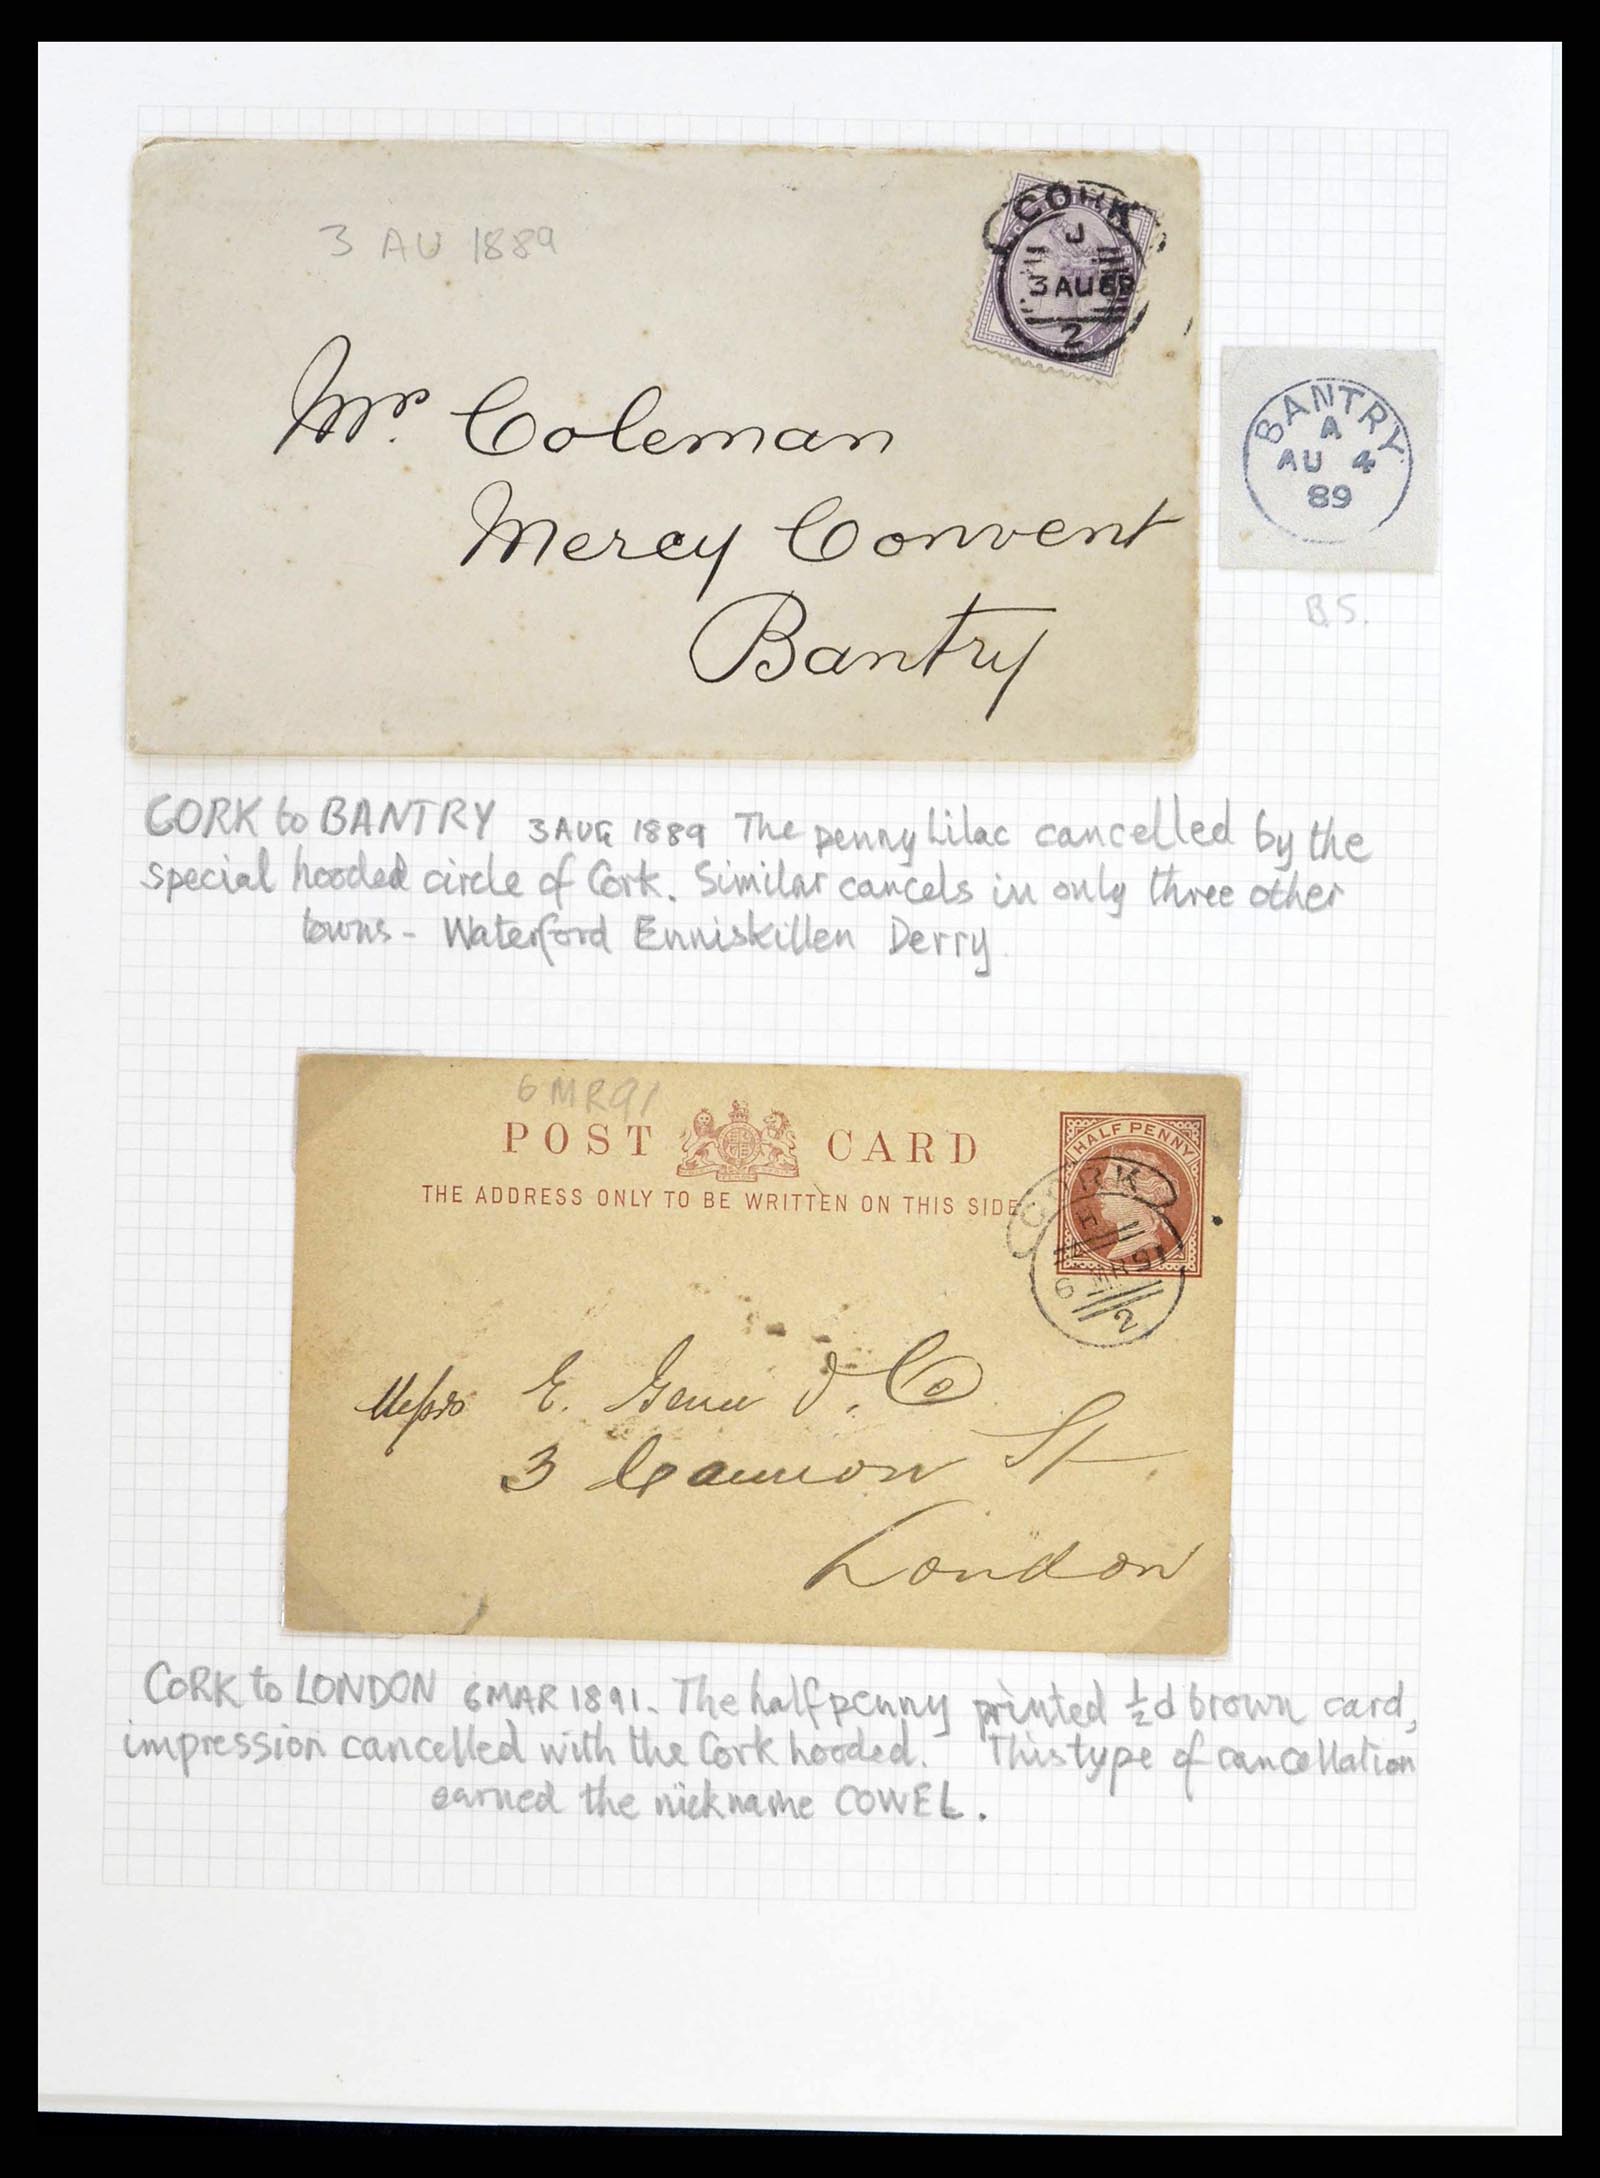 3 AU 1889
CORK
J
3 AU 89
2
Mrs. Coleman
Mercy Convent
Bantry
BANTRY
A
AU 4
89
B.S.
CORK to BANTRY 3 AUG 1889 The penny Lilac cancelled by the
special hooded circle of Cork. Similar cancels in only three other
towns - Waterford Enniskillen Derry
6 MR 91
POST CARD
THE ADDRESS ONLY TO BE WRITTEN ON THIS SIDE
HALF PENNY
CORK
H
6 MR 91
2
Messrs E. & Co
3 Cannon St
London
CORK to LONDON 6 MAR 1891. The halfpenny printed ½d brown card,
impression cancelled with the Cork hooded. This type of cancellation
earned the nickname COWEL.